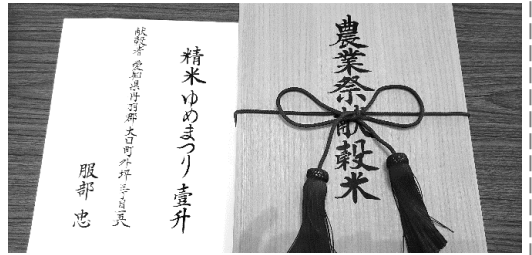 農業祭献穀米
精米ゆめまつり壹升
献穀者 愛知県丹羽郡大口町外坪
服部 忠